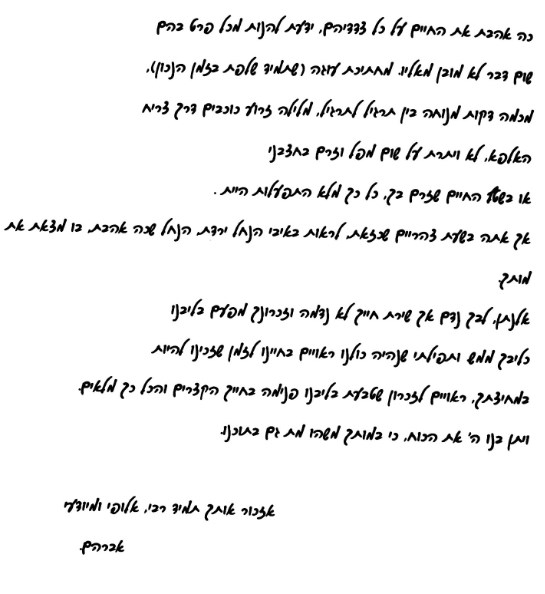 כה אהבת את החיים על כל צדדיהם, ידעת להנות מכל פרט בהם
שום דבר לא מובן מאליו. מחתיכת עוגה (שתמיד שלפת בזמן הנכון),
מכמה דקות מנוחה בין תרגיל לתרגיל, מלילה זרוע כוכבים דרך צריח
האלפא, לא ויתרת על שום מפל וזרם בחצבני
או בשטף החיים שזרם בך, כל כך מלא התפעלות היית .
אך אתה בשעת צהריים שכזאת, לראות באיבי הנחל ירדת, הנחל שכה אהבת, בו מצאת את
מותך.
אלנתן, לבך נדם אך שירת חייך לא נדמה וזכרונך מפעם בליבנו
כליבך ממש ותפילתי שנהיה כולנו ראויים בחיינו לזמן שזכינו להיות
במחיצתך, ראויים לזכרון שטבעת בליבנו פנימה בחייך הקצרים והכל כך מלאים.
ויתן בנו ה' את הכוח, כי במותך משהו מת גם בתוכנו.
אזכור אותך תמיד רבי, אלופי ומיודעי
אברהם.